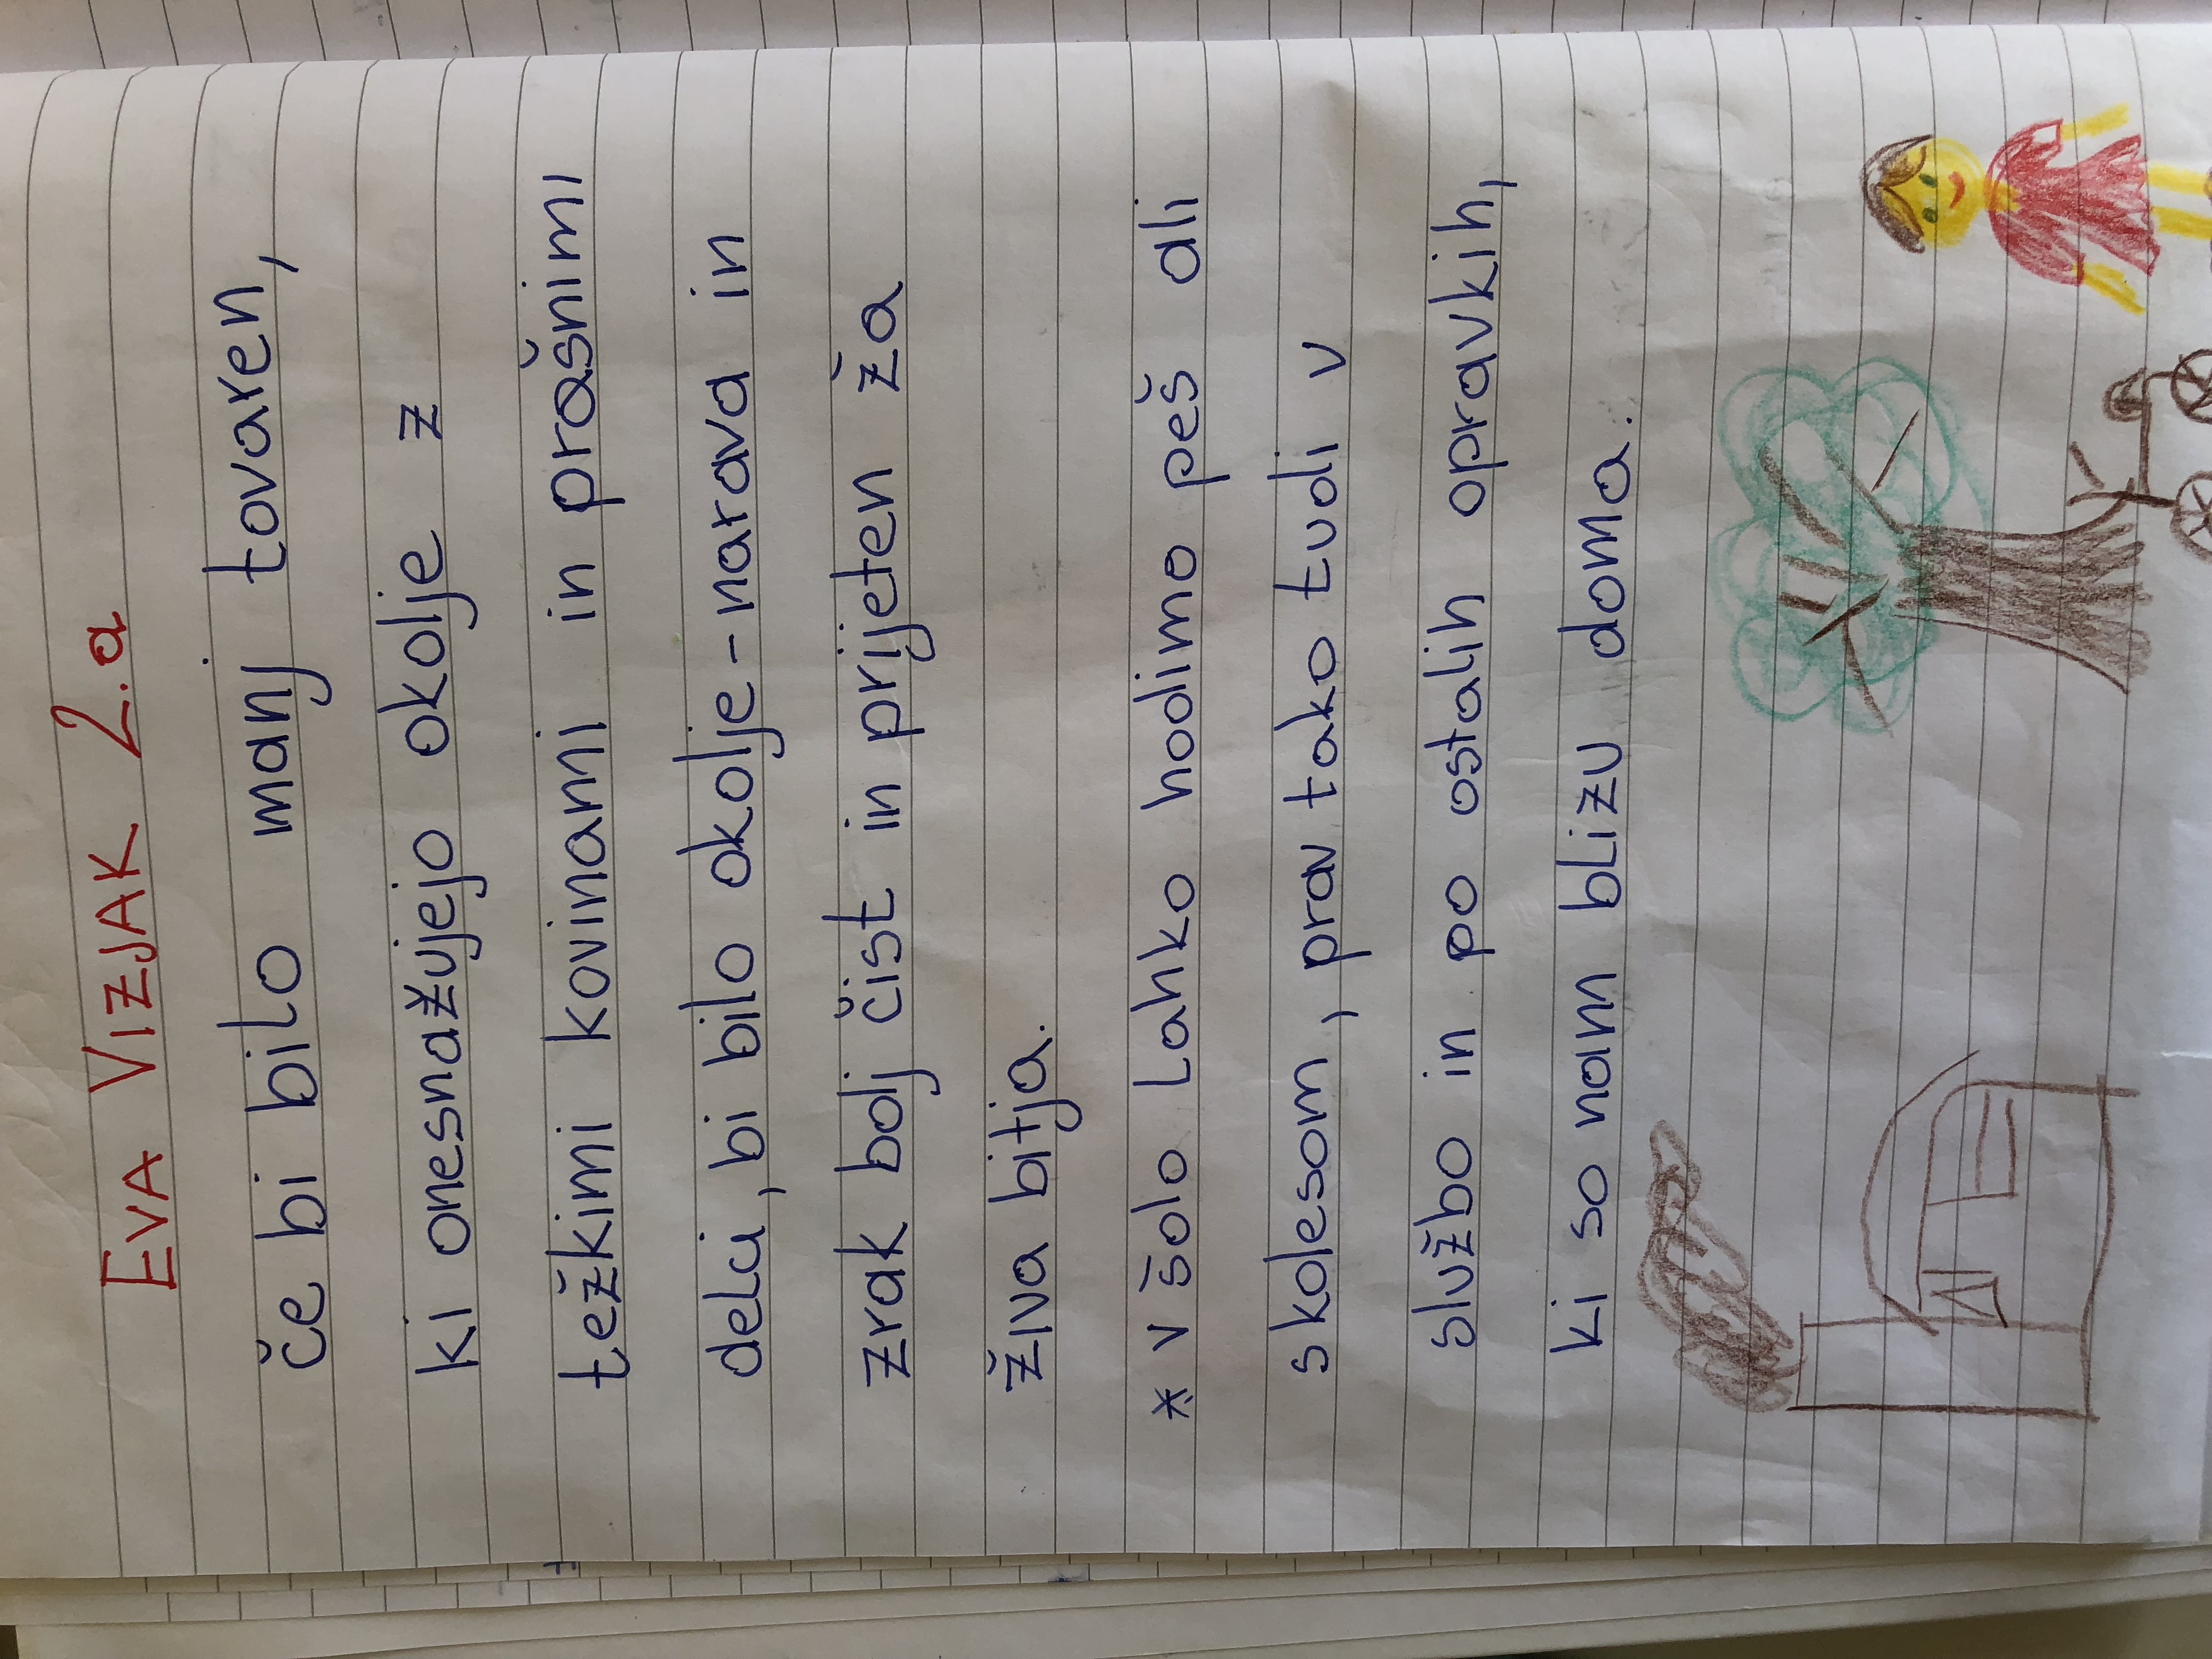 EVA VIZJAK 2.a
če bi bilo manj tovaren,
ki onesnažujejo okolje z
težkimi kovinami in prašnimi
delci, bi bilo okolje-narava in
zrak bolj čist in prijeten ža
živa bitja.
* v šolo lahko hodimo peš ali
s kolesom, prav tako tudi v
službo in po ostalih opravkih,
ki so nam blizu doma.